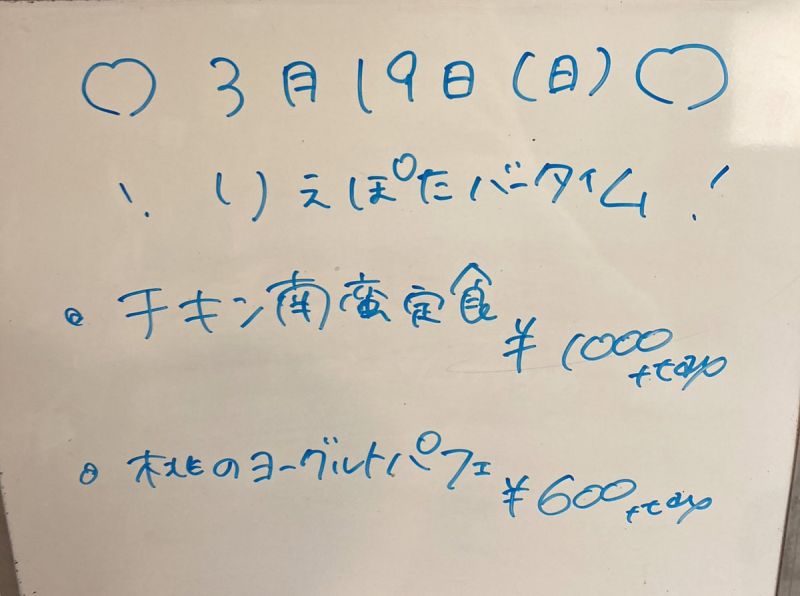 ♡ 3月19日(日) ♡
\ りえぽたバータイム !
・ チキン南蛮定食 ¥1000+tax
・ 桃のヨーグルトパフェ ¥600+tax